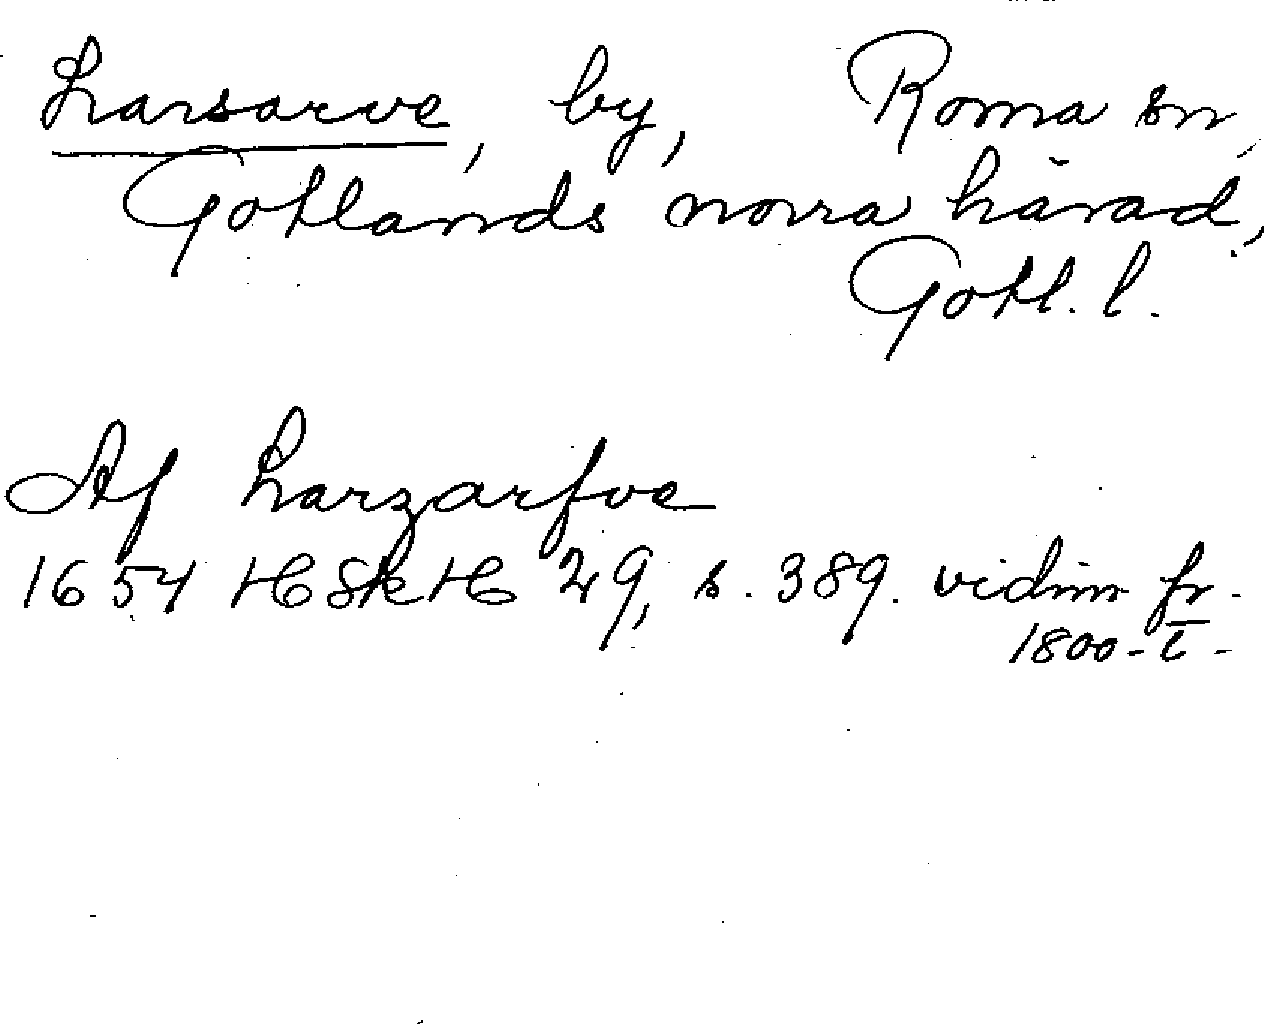 Larsarve, by, Roma sn,
Gotlands norra härad,
Gotl. l.
Af Larzarfve
1654 HSkH 29, s. 389. vidim fr.
1800-t.